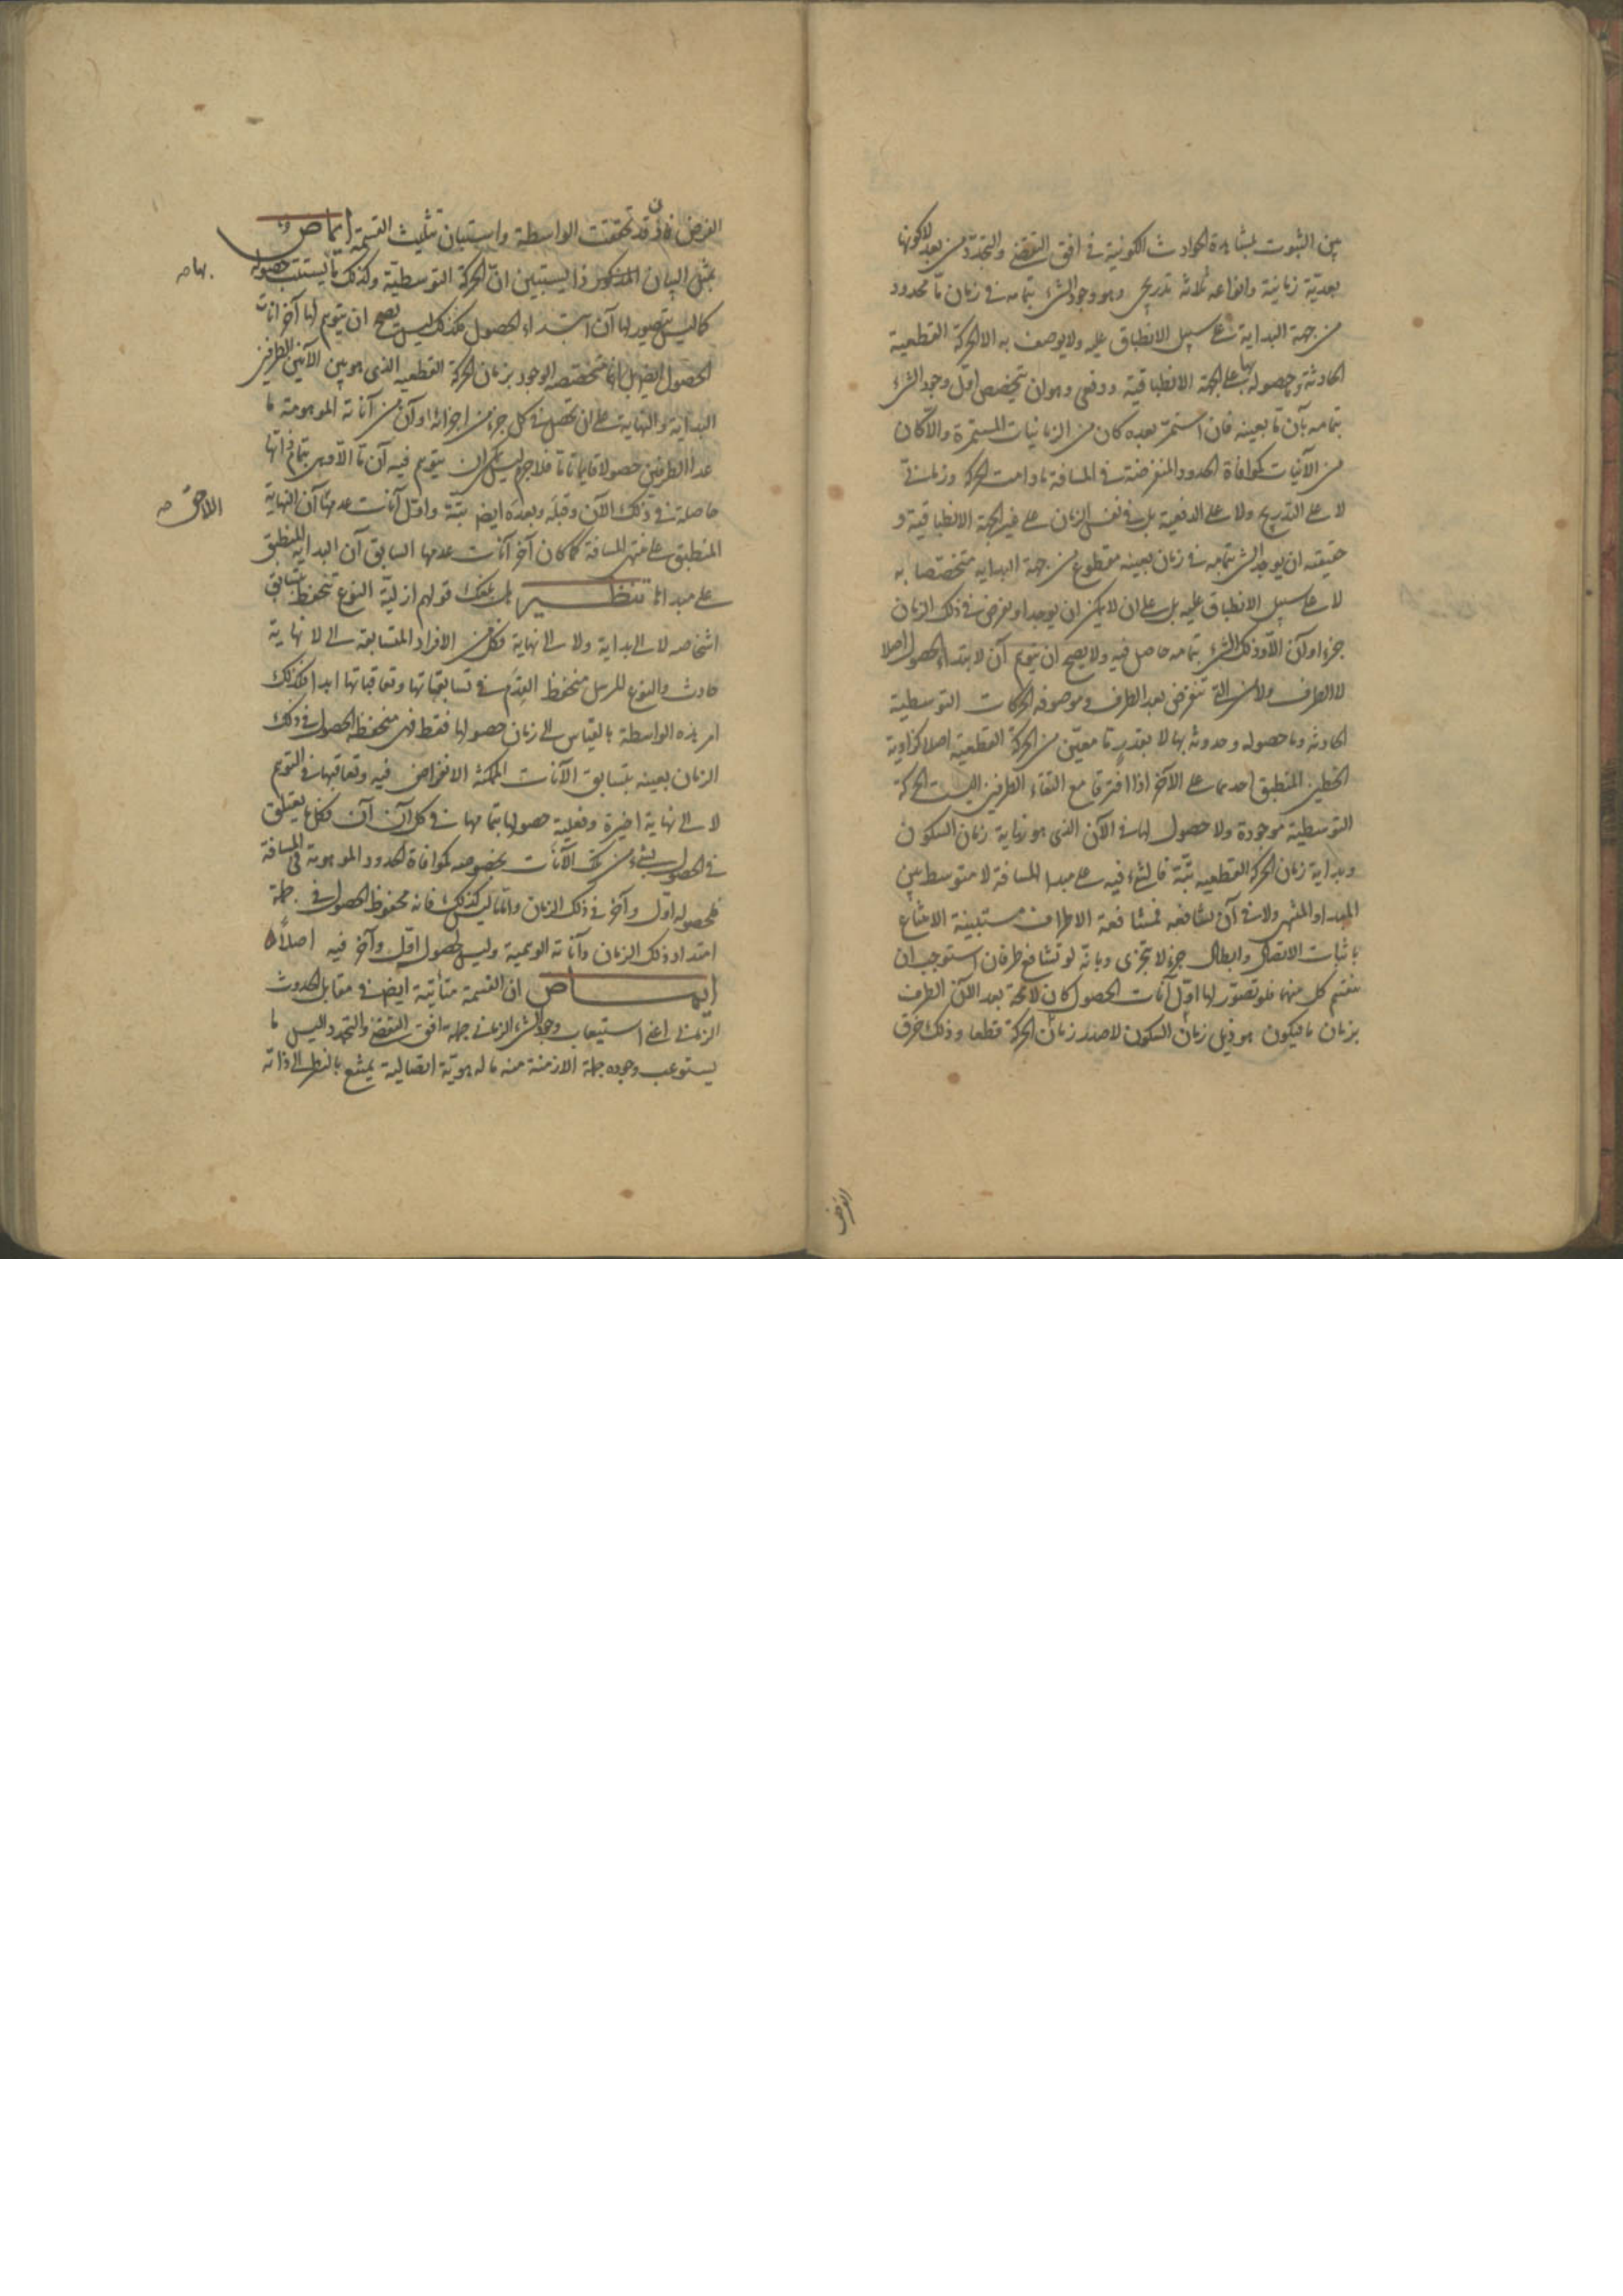 بين الثبوت بمشاهدة الحوادث الكونية في افق التقضي والتجدد من بعد لا كونها
بعدية زمانية وانواعه ثلاثة تدريجي وهو وجود الشيء بتمامه في زمان ما محدود
من جهة البداية على سبيل الانطباق عليه ولا يوصف به الا الحركة القطعية
الحادثة وحصوله بها على الجهة الانطباقية ودفعي وهو ان يتخصص اول وجود الشيء
بتمامه بآن ما بعينه فان استمر بعده كان من الزمانيات المستمرة والا كان
من الآنيات كموافاة الحدود المنفرضة في المسافة ما دامت الحركة وزماني
لا على التدريج ولا على الدفعية بل في نفس الزمان على غير الجهة الانطباقية و
حقيقته ان يوجد الشيء بتمامه في زمان بعينه مقطوع من جهة البداية متخصصا به
لا على سبيل الانطباق عليه بل على ان لا يمكن ان يوجد او يفرض في ذلك الزمان
جزء او آن الا وذلك الشيء بتمامه حاصل فيه ولا يصح ان يتوهم آن لابتداء الحصول اصلا
لا الطرف ولا من التي تنفرض بعد الطرف وموصوفه الحركات التوسطية
الحادثة وما حصوله وحدوثه بها لا بقدر ما معين من الحركة القطعية اصلا كزاوية
الخطين المنطبق احدهما على الآخر اذا افترقا مع التقاء الطرفين اليست الحركة
التوسطية موجودة ولا حصول لها في الآن الذي هو نهاية زمان السكون
وبداية زمان الحركة القطعية بتة فالشيء فيه على مبدا المسافة لا متوسط بين
المبدا والمنتهى ولا في آن يشافعه فمشافعة الاطراف مستبينة الامتناع
باثبات الاتصال وابطال جزء لا يتجزى وبانه لو تشافع طرفان استوجب ان
ينقسم كل منهما فلو تصور لها اول آنات الحصول كان لا محة بعد الآن الطرف
بزمان ما فيكون هو ذيل زمان السكون لا صدر زمان الحركة قطعا وذلك خرق
الفرض
الفرض فاذن قد تحققت الواسطة واستبان تثليث القسمة ايماض وما
بمثل البيان المذكور ذا يستبين ان الحركة التوسطية وكذلك ما يستتب حصوله
بها صح
كما ليس يتصور لها آن ابتداء الحصول فكذلك ليس يصح ان يتوهم لها آخر آنات
الحصول ايضا بل انها متخصصة الوجود بزمان الحركة القطعية الذي هو بين الآنين الطرفين
البداية والنهاية على ان تحصل في كل جزء من اجزائه او آن من آناته الموهومة ما
عدا الطرفين حصولا فلا جرم ليس يمكن ان يتوهم فيه آن ما الا وهي بتمام ذاتها
حاصلة في ذلك الآن وقبله وبعده ايضا بتة واول آنات عدمها آن النهاية
اللاحق صح
المنطبق على منتهى المسافة كما كان آخر آنات عدمها السابق آن البداية المنطبق
على مبداها تنظير بل بلغك قولهم ازلية النوع تنحفظ بتسابق
اشخاصه لا الى بداية ولا الى نهاية فكل من الافراد المتسابقة الى لا نهاية
حادث والنوع المرسل منحفظ القدم في تسابقاتها وتعاقباتها ابدا فكذلك
امر هذه الواسطة بالقياس الى زمان حصولها فقط فهي منحفظة الحصول في ذلك
الزمان بعينه بتسابق الآنات الممكنة الانفراض فيه وتعاقبها في التوهم
لا الى نهاية اخيرة وفعلية حصولها بتمامها في كل آن آن فكل ما يتعلق
في الحصول بشيء من تلك الآنات بخصوصه كموافاة الحدود الموهومة في المسافة
فلحصوله اول وآخر في ذلك الزمان واما ما ليس كذلك فانه محفوظ الحصول في جملة
امتداد ذلك الزمان وآناته الوهمية وليس لحصوله اول وآخر فيه اصلا
ايماض ان القسمة متأتية ايضا في مقابل الحدوث
الزماني اعني استيعاب وجود الشيء الزماني جملة افق التقضي والتجدد اليس ما
يستوعب وجوده جملة الازمنة منه ما له هوية اتصالية يمتنع بالنظر الى ذاته